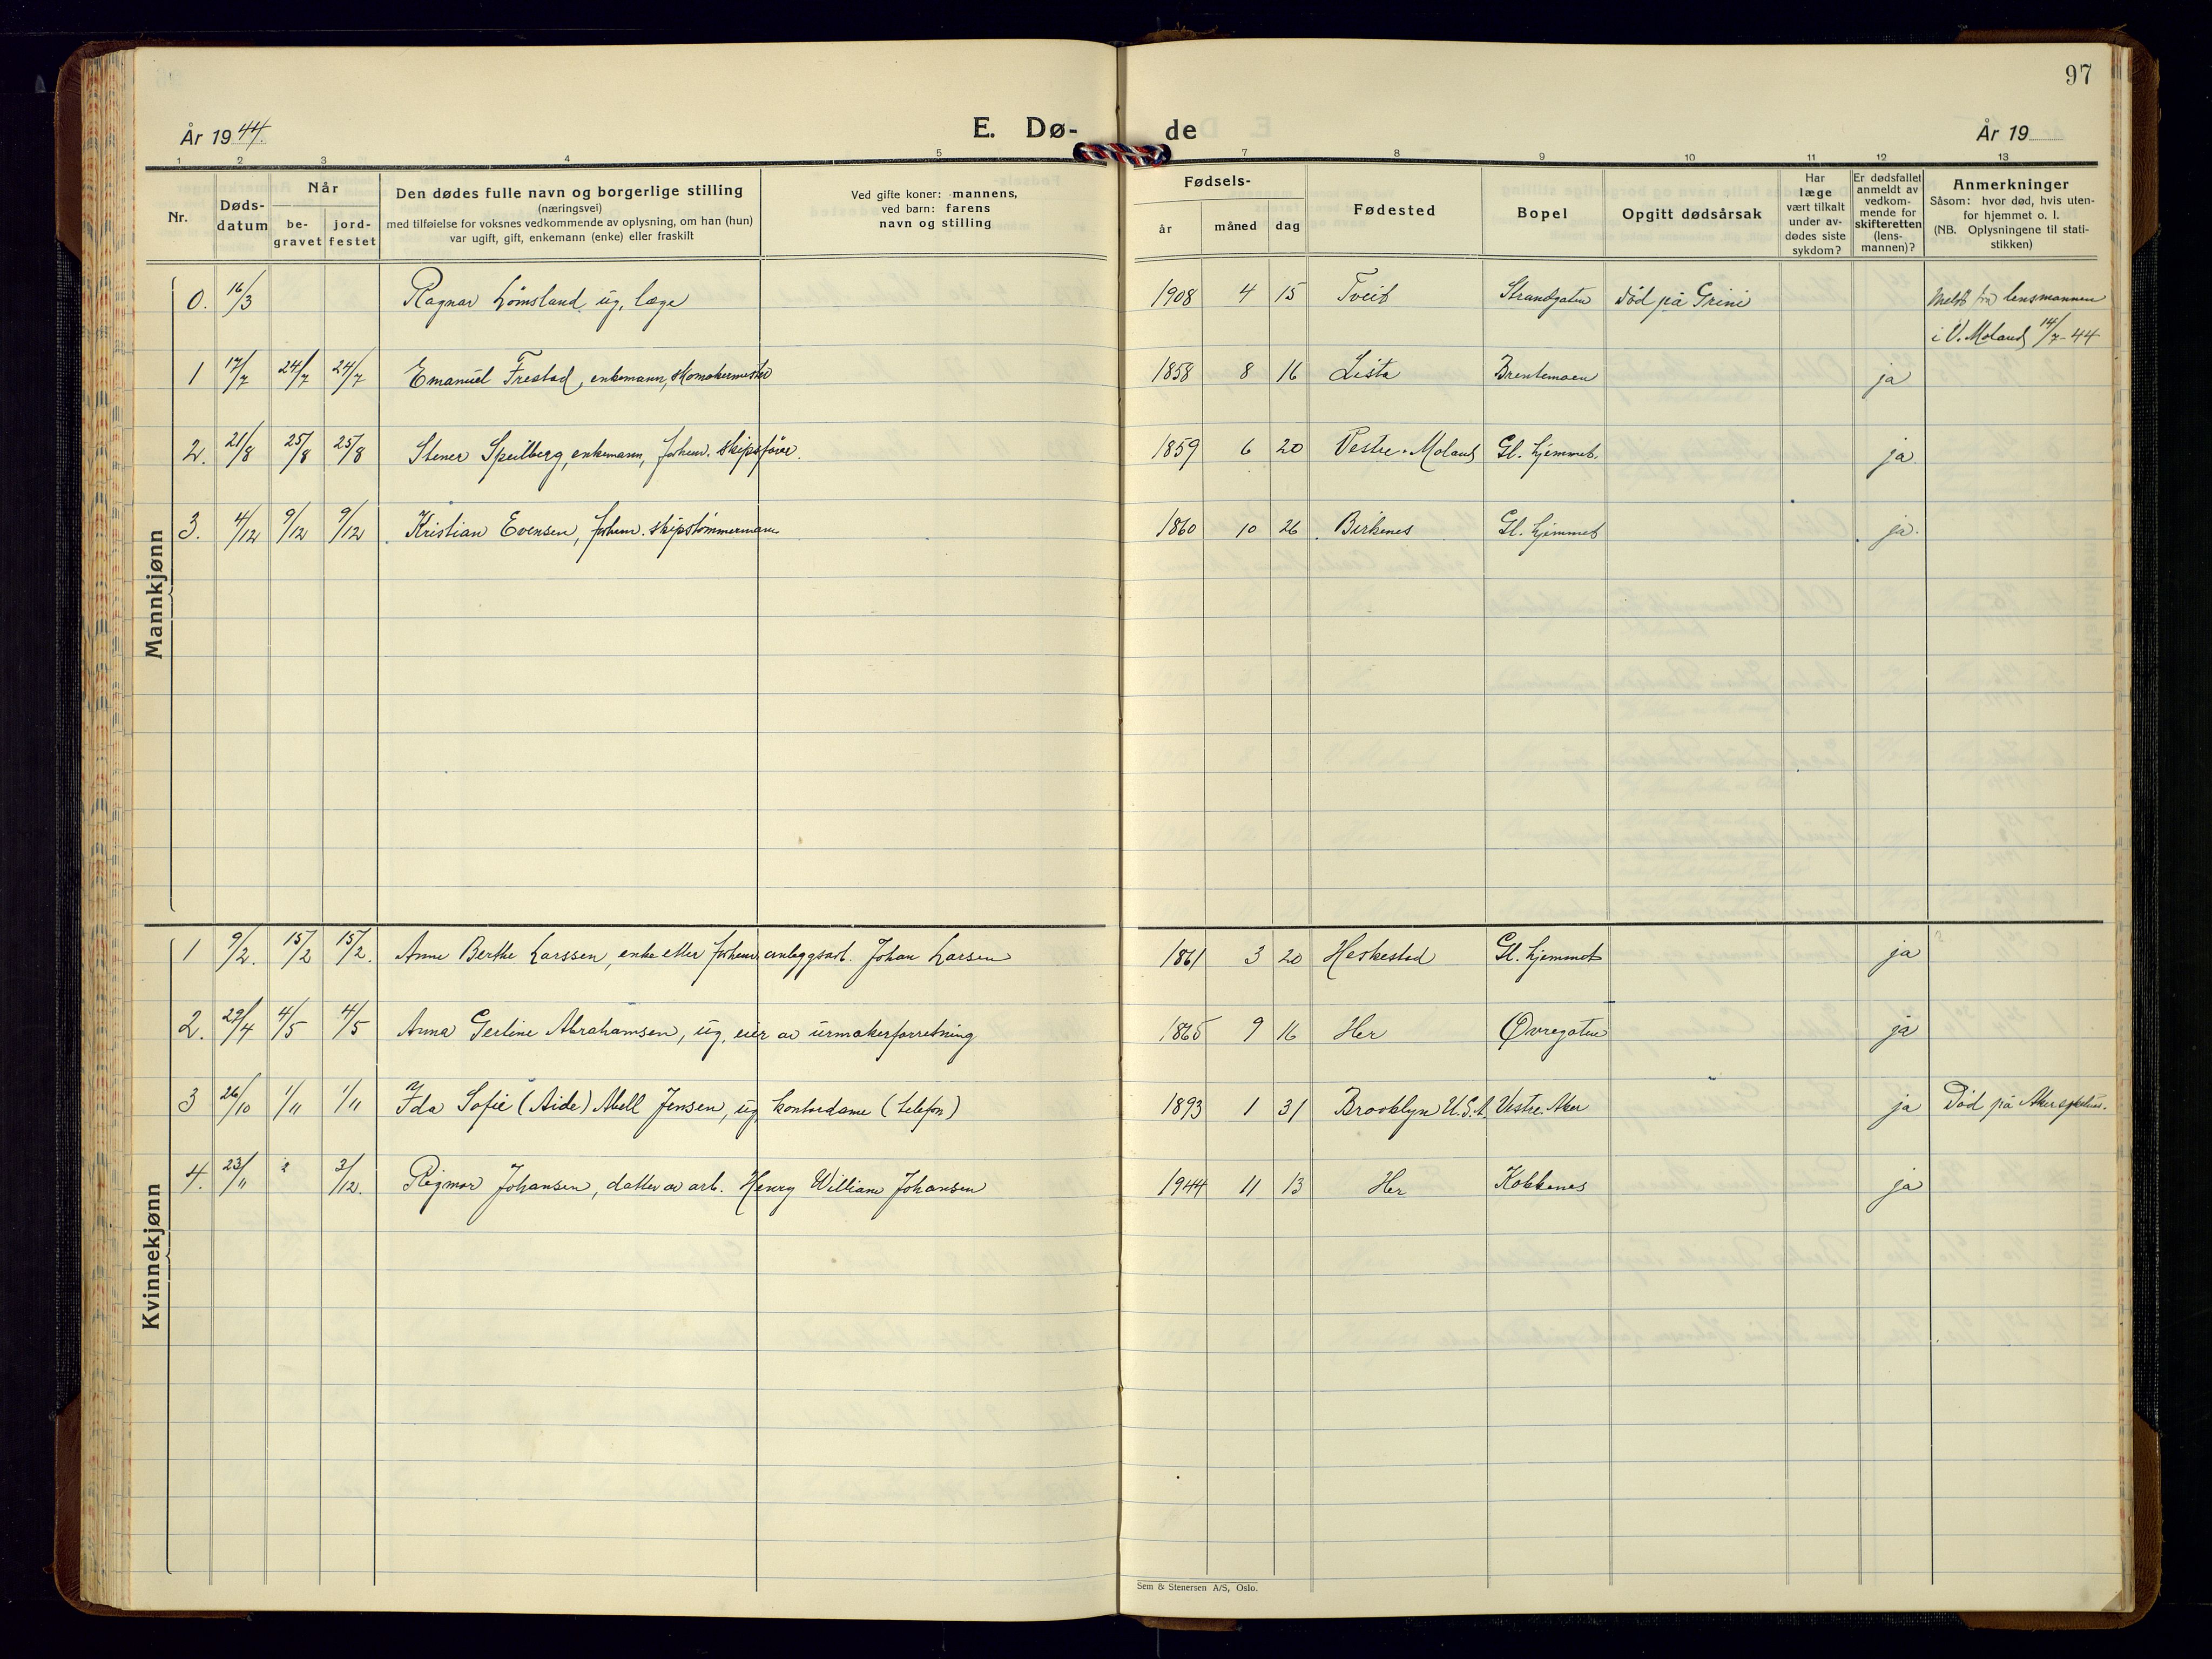 97
År 1944.
E. Dø- de
År 19
1 2 3 4 5 7 8 9 10 11 12 13
Nr.
Dødsdatum
Når
begravet
jordfestet
Den dødes fulle navn og borgerlige stilling
(næringsvei)
med tilføielse for voksnes vedkommende av oplysning, om han (hun)
var ugift, gift, enkemann (enke) eller fraskilt
Ved gifte koner: mannens,
ved barn: farens
navn og stilling
Fødsels-
år måned dag
Fødested
Bopel
Opgitt dødsårsak
Har
læge
vært tilkalt
under av-
dødes siste
sykdom?
Er dødsfallet
anmeldt av
vedkom-
mende for
skifteretten
(lens-
mannen)?
Anmerkninger
Såsom: hvor død, hvis uten-
for hjemmet o. l.
(NB. Oplysningene til stati-
stikken)
Mannkjønn
0. 16/3 Ragnar Lømsland, ug, læge 1908 4 15 Tveit Strandgaten Død på Grini Meldt fra lensmannen
i V. Moland 14/7-44
1 17/7 24/7 24/7 Emanuel Frestad, enkemann, skomakermester 1858 8 16 Lista Brentemoen ja
2. 21/8 25/8 25/8 Stener Speilberg, enkemann, forhenv. skipsfører. 1859 6 20 Vestre-Moland Gl. hjemmet. ja
3. 4/12 9/12 9/12 Kristian Evensen, forhenv. skipstømmermann 1860 10 26 Birkenes Gl. hjemmet ja.
Kvinnekjønn
1 9/2. 15/2 15/2. Anne Berthe Larssen, enke etter forhenv. anleggsarb. Johan Larsen 1861 3 20 Heskestad Gl. hjemmet ja
2. 29/4 4/5 4/5 Anna Gerline Abrahamsen, ug, eier av urmakerforretning 1865 9 16 Her Øvregaten ja
3 26/10 1/11 1/11 Ida Sofie (Aide) Abell Jensen, ug, kontordame (telefon) 1893 1 31 Brooklyn U.S.A. Vestre Aker ja Død på Aker sykehus.
4. 23/11 3/12. Rigmor Johansen, datter av arb. Henry William Johansen 1944 11 13 Her Kokkenes ja
Sem & Stenersen A/S, Oslo.